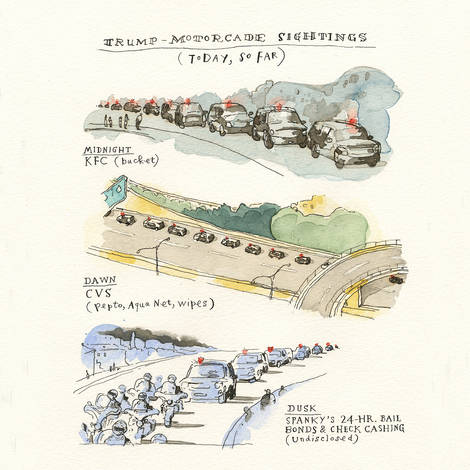 TRUMP-MOTORCADE SIGHTINGS
(TODAY, SO FAR)
MIDNIGHT
KFC (bucket)
DAWN
CVS
(Pepto, Aqua Net, wipes)
DUSK
SPANKY'S 24-HR. BAIL
BONDS & CHECK CASHING
(undisclosed)